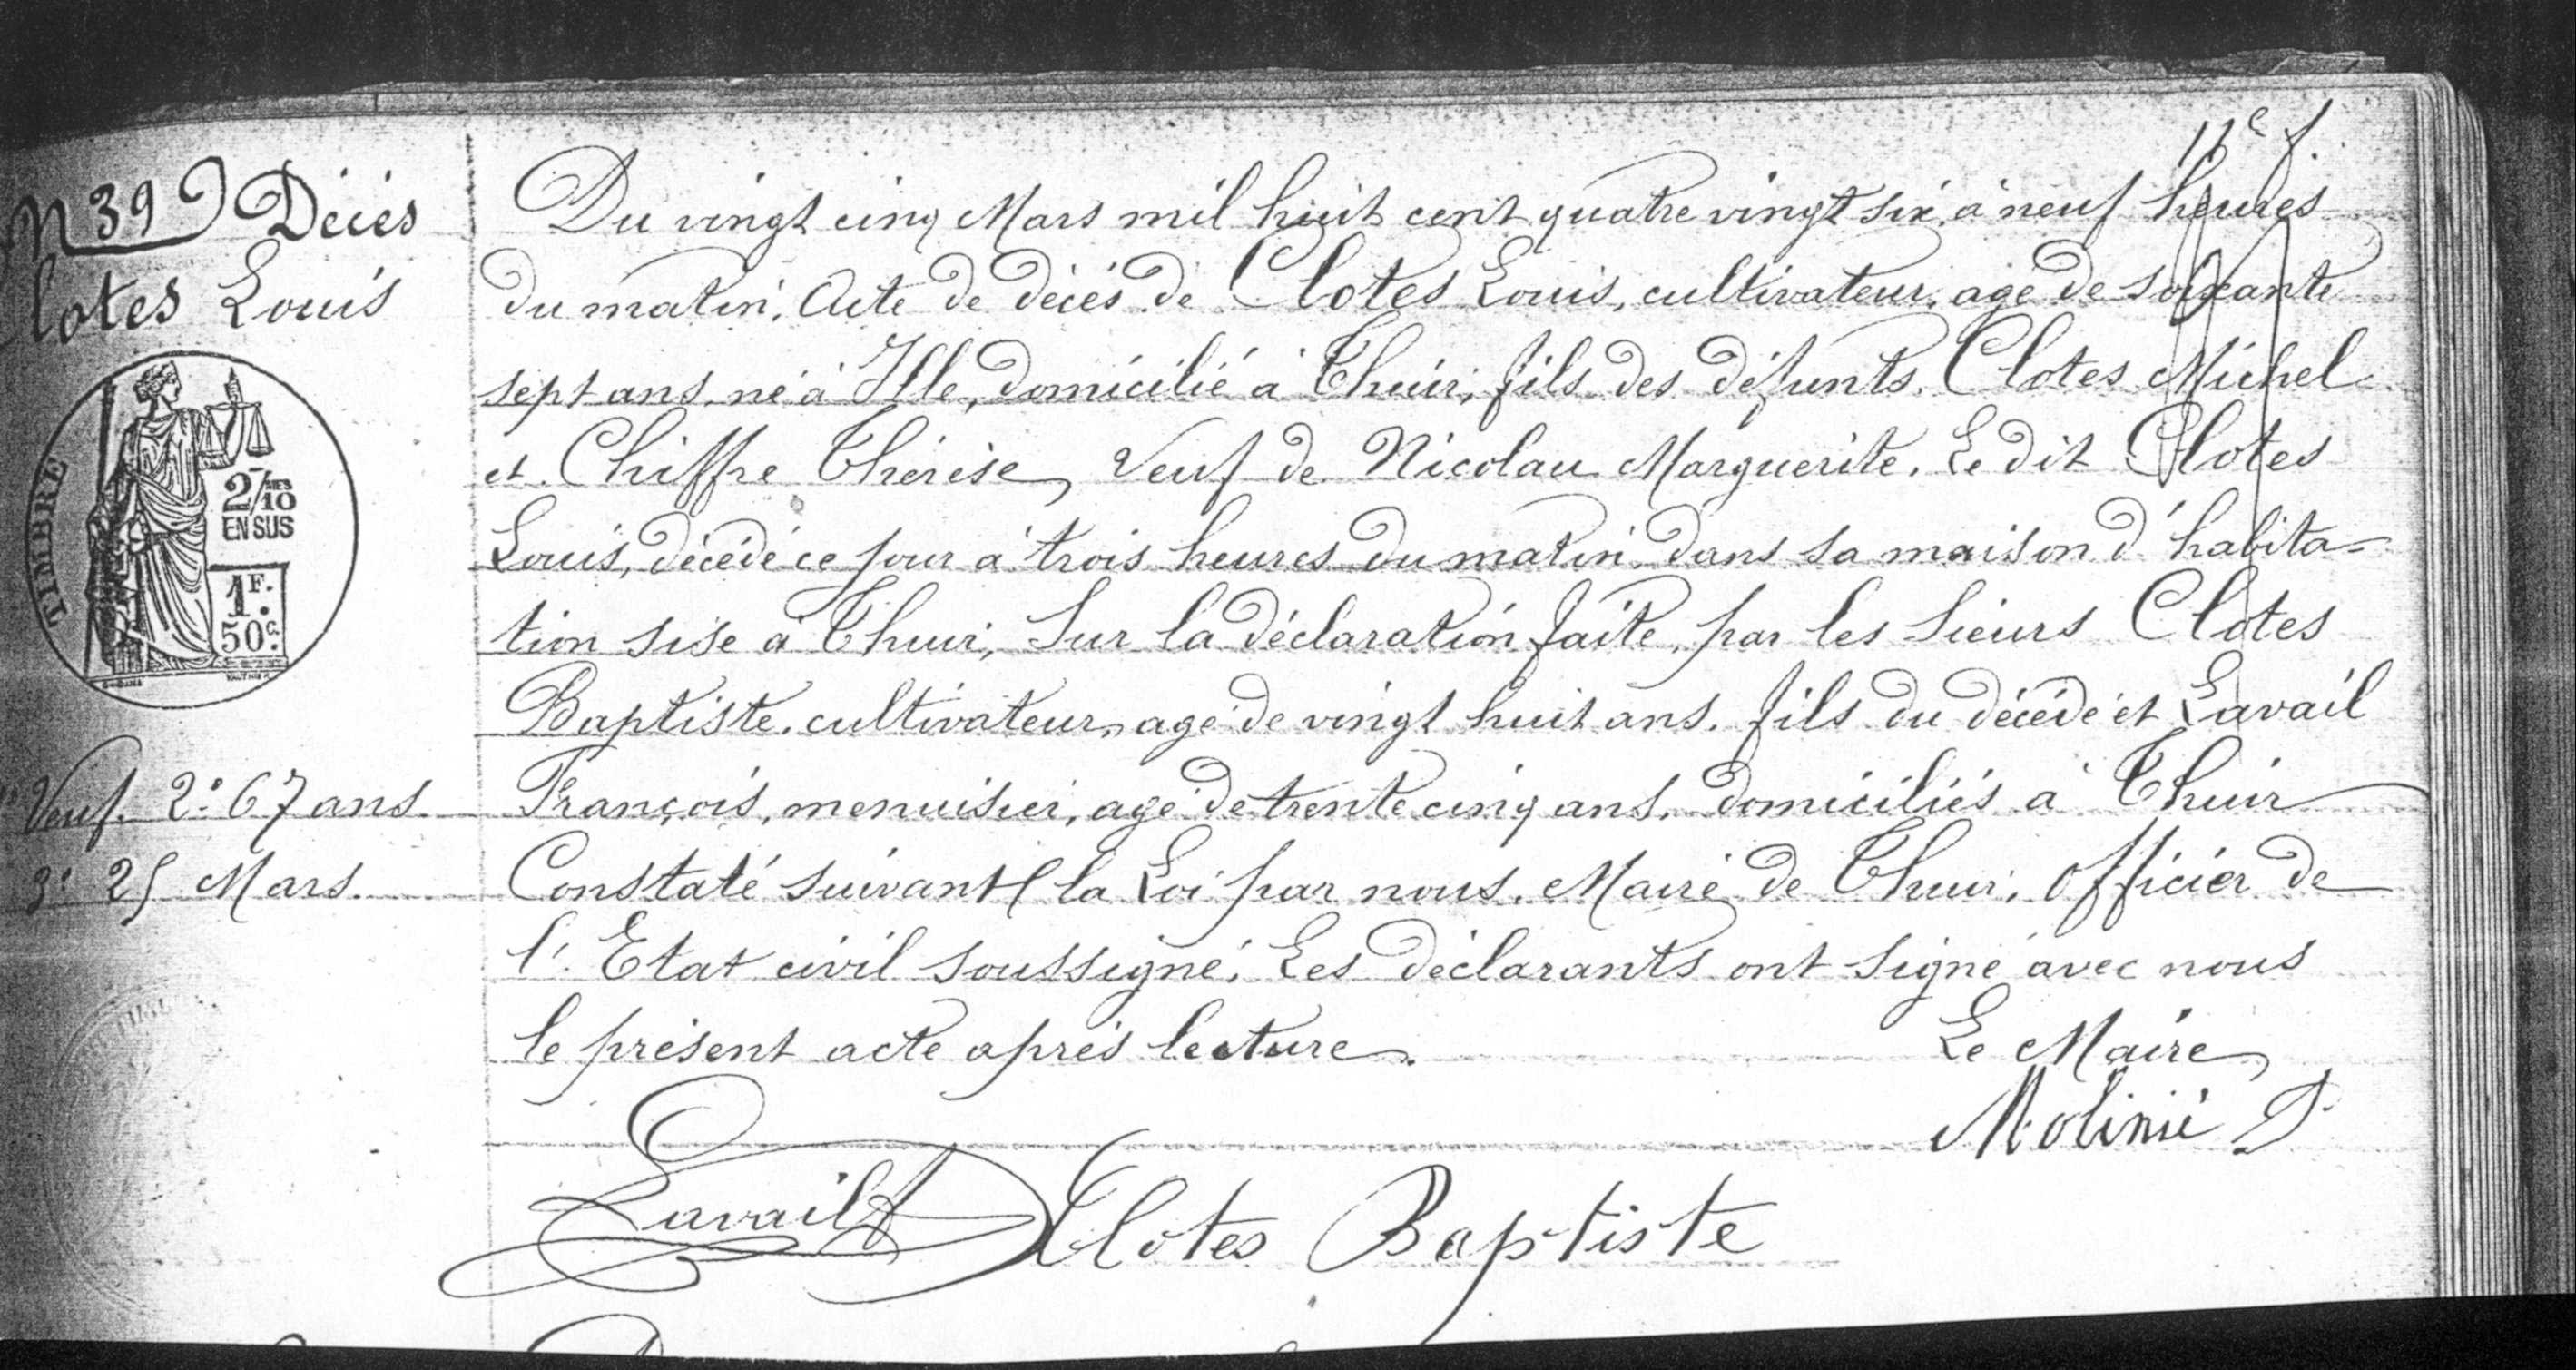 11e f.
N 39 Décès
Clotes Louis
TIMBRE
2/10MES
EN SUS
1F.
50c.
Veuf. 2° 67 ans
3° 25 Mars.
Du vingt cinq Mars mil huit cent quatre vingt six, à neuf heures
du matin. Acte de décès de Clotes Louis, cultivateur, agé de soixante
sept ans, né à Ille, domicilié à Thuir, fils des défunts Clotes Michel
et Chiffre Thérèse, Veuf de Nicolau Marguerite. Le dit Clotes
Louis, décédé ce jour à trois heures du matin dans sa maison d'habita-
tion sise à Thuir, Sur la déclaration faite, par les Sieurs Clotes
Baptiste, cultivateur, agé de vingt huit ans, fils du décédé et Lavail
François, menuisier, agé de trente cinq ans, domiciliés à Thuir
Constaté suivant la Loi par nous, Maire de Thuir, officier de
l'Etat civil soussigné. Les déclarants ont signé avec nous
le présent acte après lecture.
Le Maire,
Molinié
Lavail Clotes Baptiste